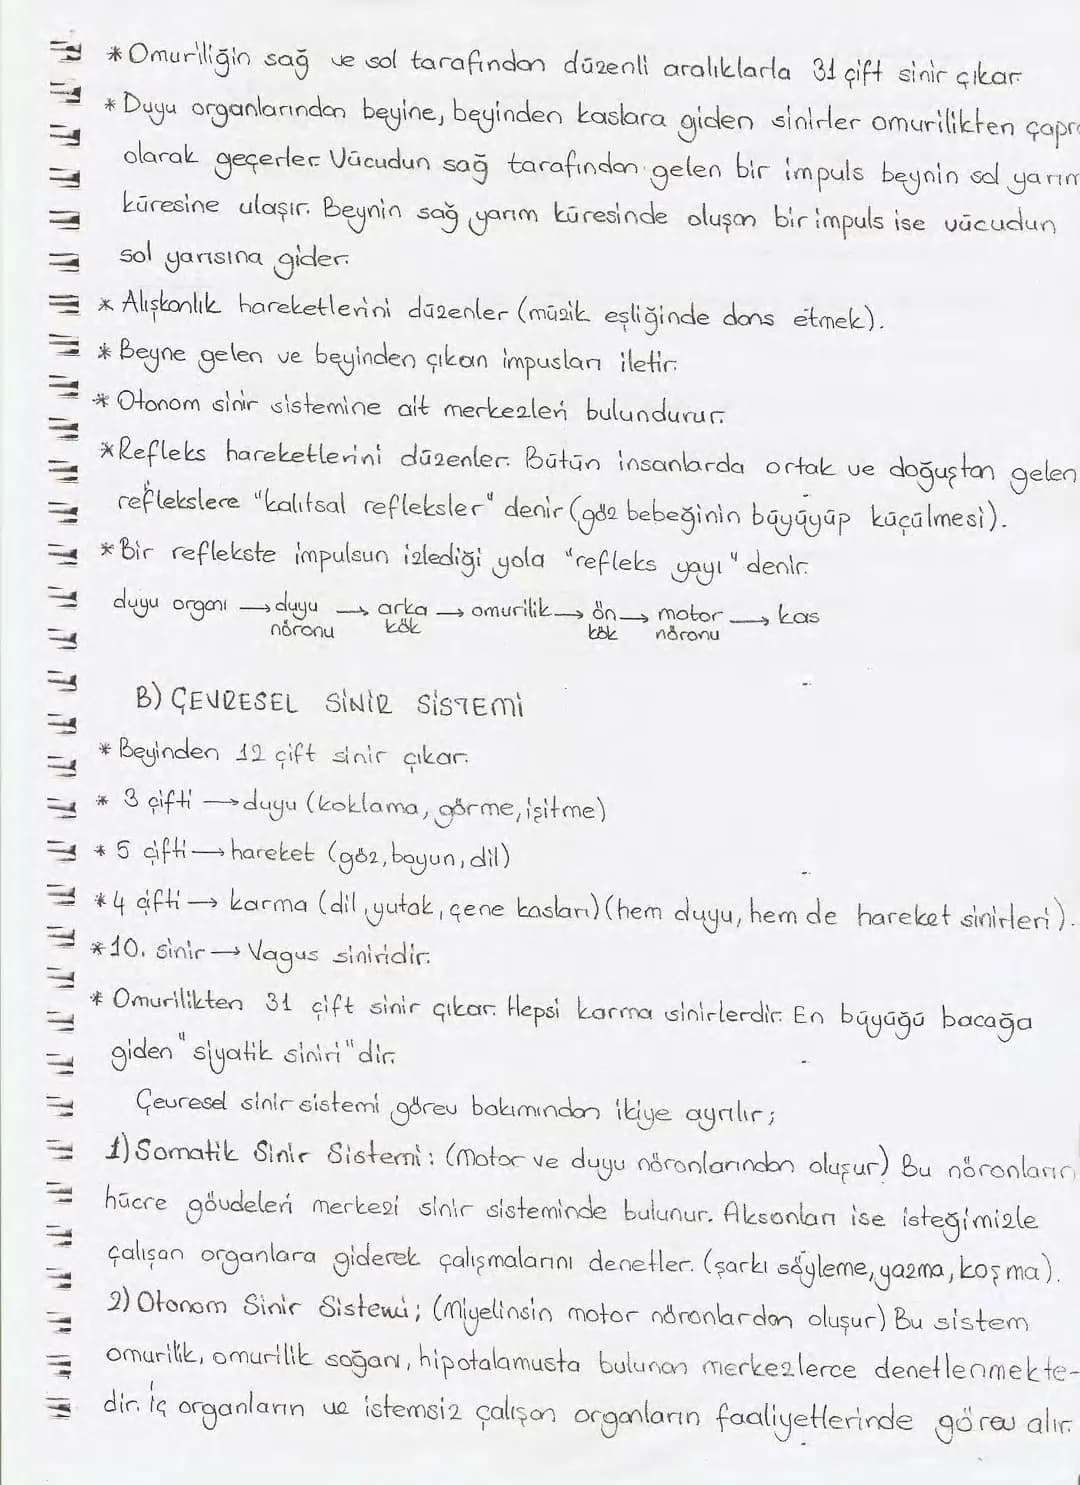 * Omuriliğin sağ ve sol tarafından düzenli aralıklarla 31 çift sinir çıkar
* Duyu organlarından beyine, beyinden kaslara giden sinirler omurilikten çapra
olarak geçerler. Vücudun sağ tarafından gelen bir impuls beynin sol yarım
küresine ulaşır. Beynin sağ yarım küresinde oluşan bir impuls ise vücudun
sol yarısına gider.
* Alışkanlık hareketlerini düzenler (müzik eşliğinde dans etmek).
* Beyne gelen ve beyinden çıkan impusları iletir.
* Otonom sinir sistemine ait merkezleri bulundurur.
* Refleks hareketlerini düzenler. Bütün insanlarda ortak ve doğuştan gelen
reflekslere "kalıtsal refleksler" denir (göz bebeğinin büyüyüp küçülmesi).
* Bir reflekste impulsun izlediği yola "refleks yayı" denir.
duyu organı → duyu nöronu → arka kök → omurilik → ön kök → motor nöronu → kas
B) ÇEVRESEL SİNİR SİSTEMİ
* Beyinden 12 çift sinir çıkar.
* 3 çifti → duyu (koklama, görme, işitme)
* 5 çifti → hareket (göz, boyun, dil)
* 4 çifti → karma (dil, yutak, çene kasları) (hem duyu, hem de hareket sinirleri).
* 10. sinir → Vagus siniridir.
* Omurilikten 31 çift sinir çıkar. Hepsi karma sinirlerdir. En büyüğü bacağa
giden "siyatik siniri"dir.
Çevresel sinir sistemi görev bakımından ikiye ayrılır;
1) Somatik Sinir Sistemi: (Motor ve duyu nöronlarından oluşur) Bu nöronların
hücre gövdeleri merkezi sinir sisteminde bulunur. Aksonları ise isteğimizle
çalışan organlara giderek çalışmalarını denetler. (şarkı söyleme, yazma, koşma).
2) Otonom Sinir Sistemi; (Miyelinsin motor nöronlardan oluşur) Bu sistem
omurilik, omurilik soğanı, hipotalamusta bulunan merkezlerce denetlenmekte-
dir. İç organların ve istemsiz çalışan organların faaliyetlerinde görev alır.